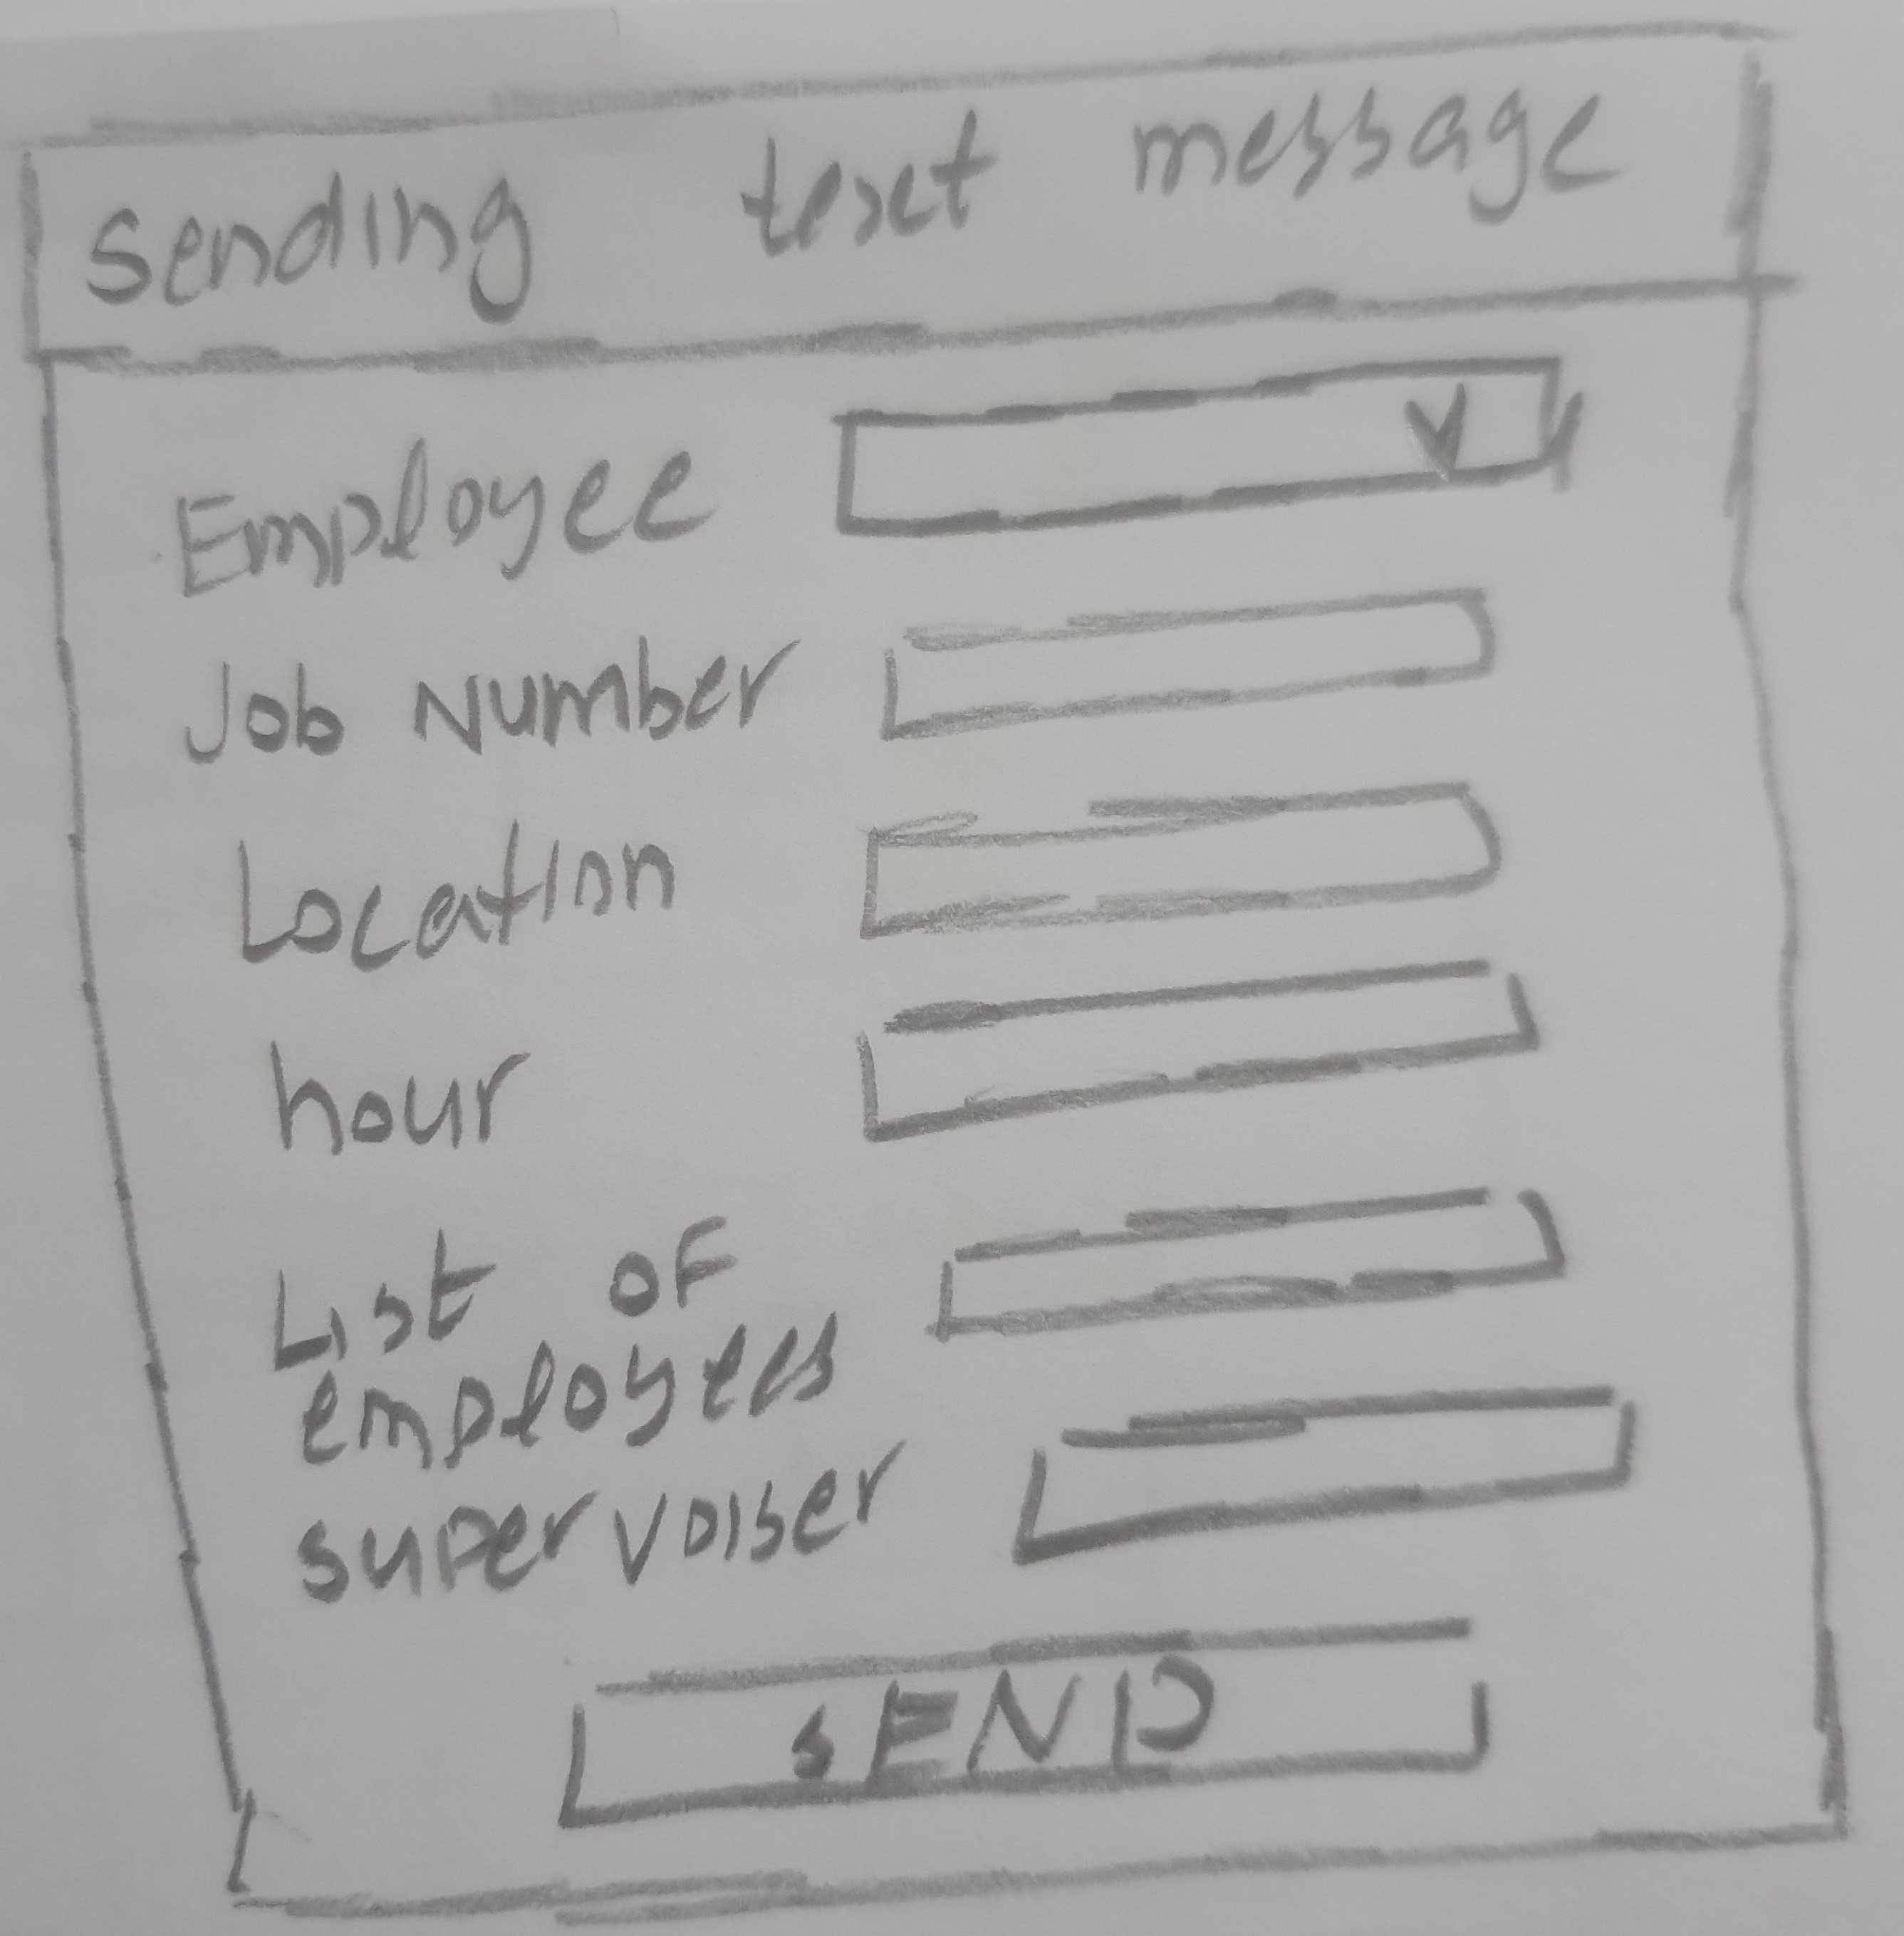 sending text message
Employee
Job Number
Location
hour
List of
employees
supervoiser
SEND